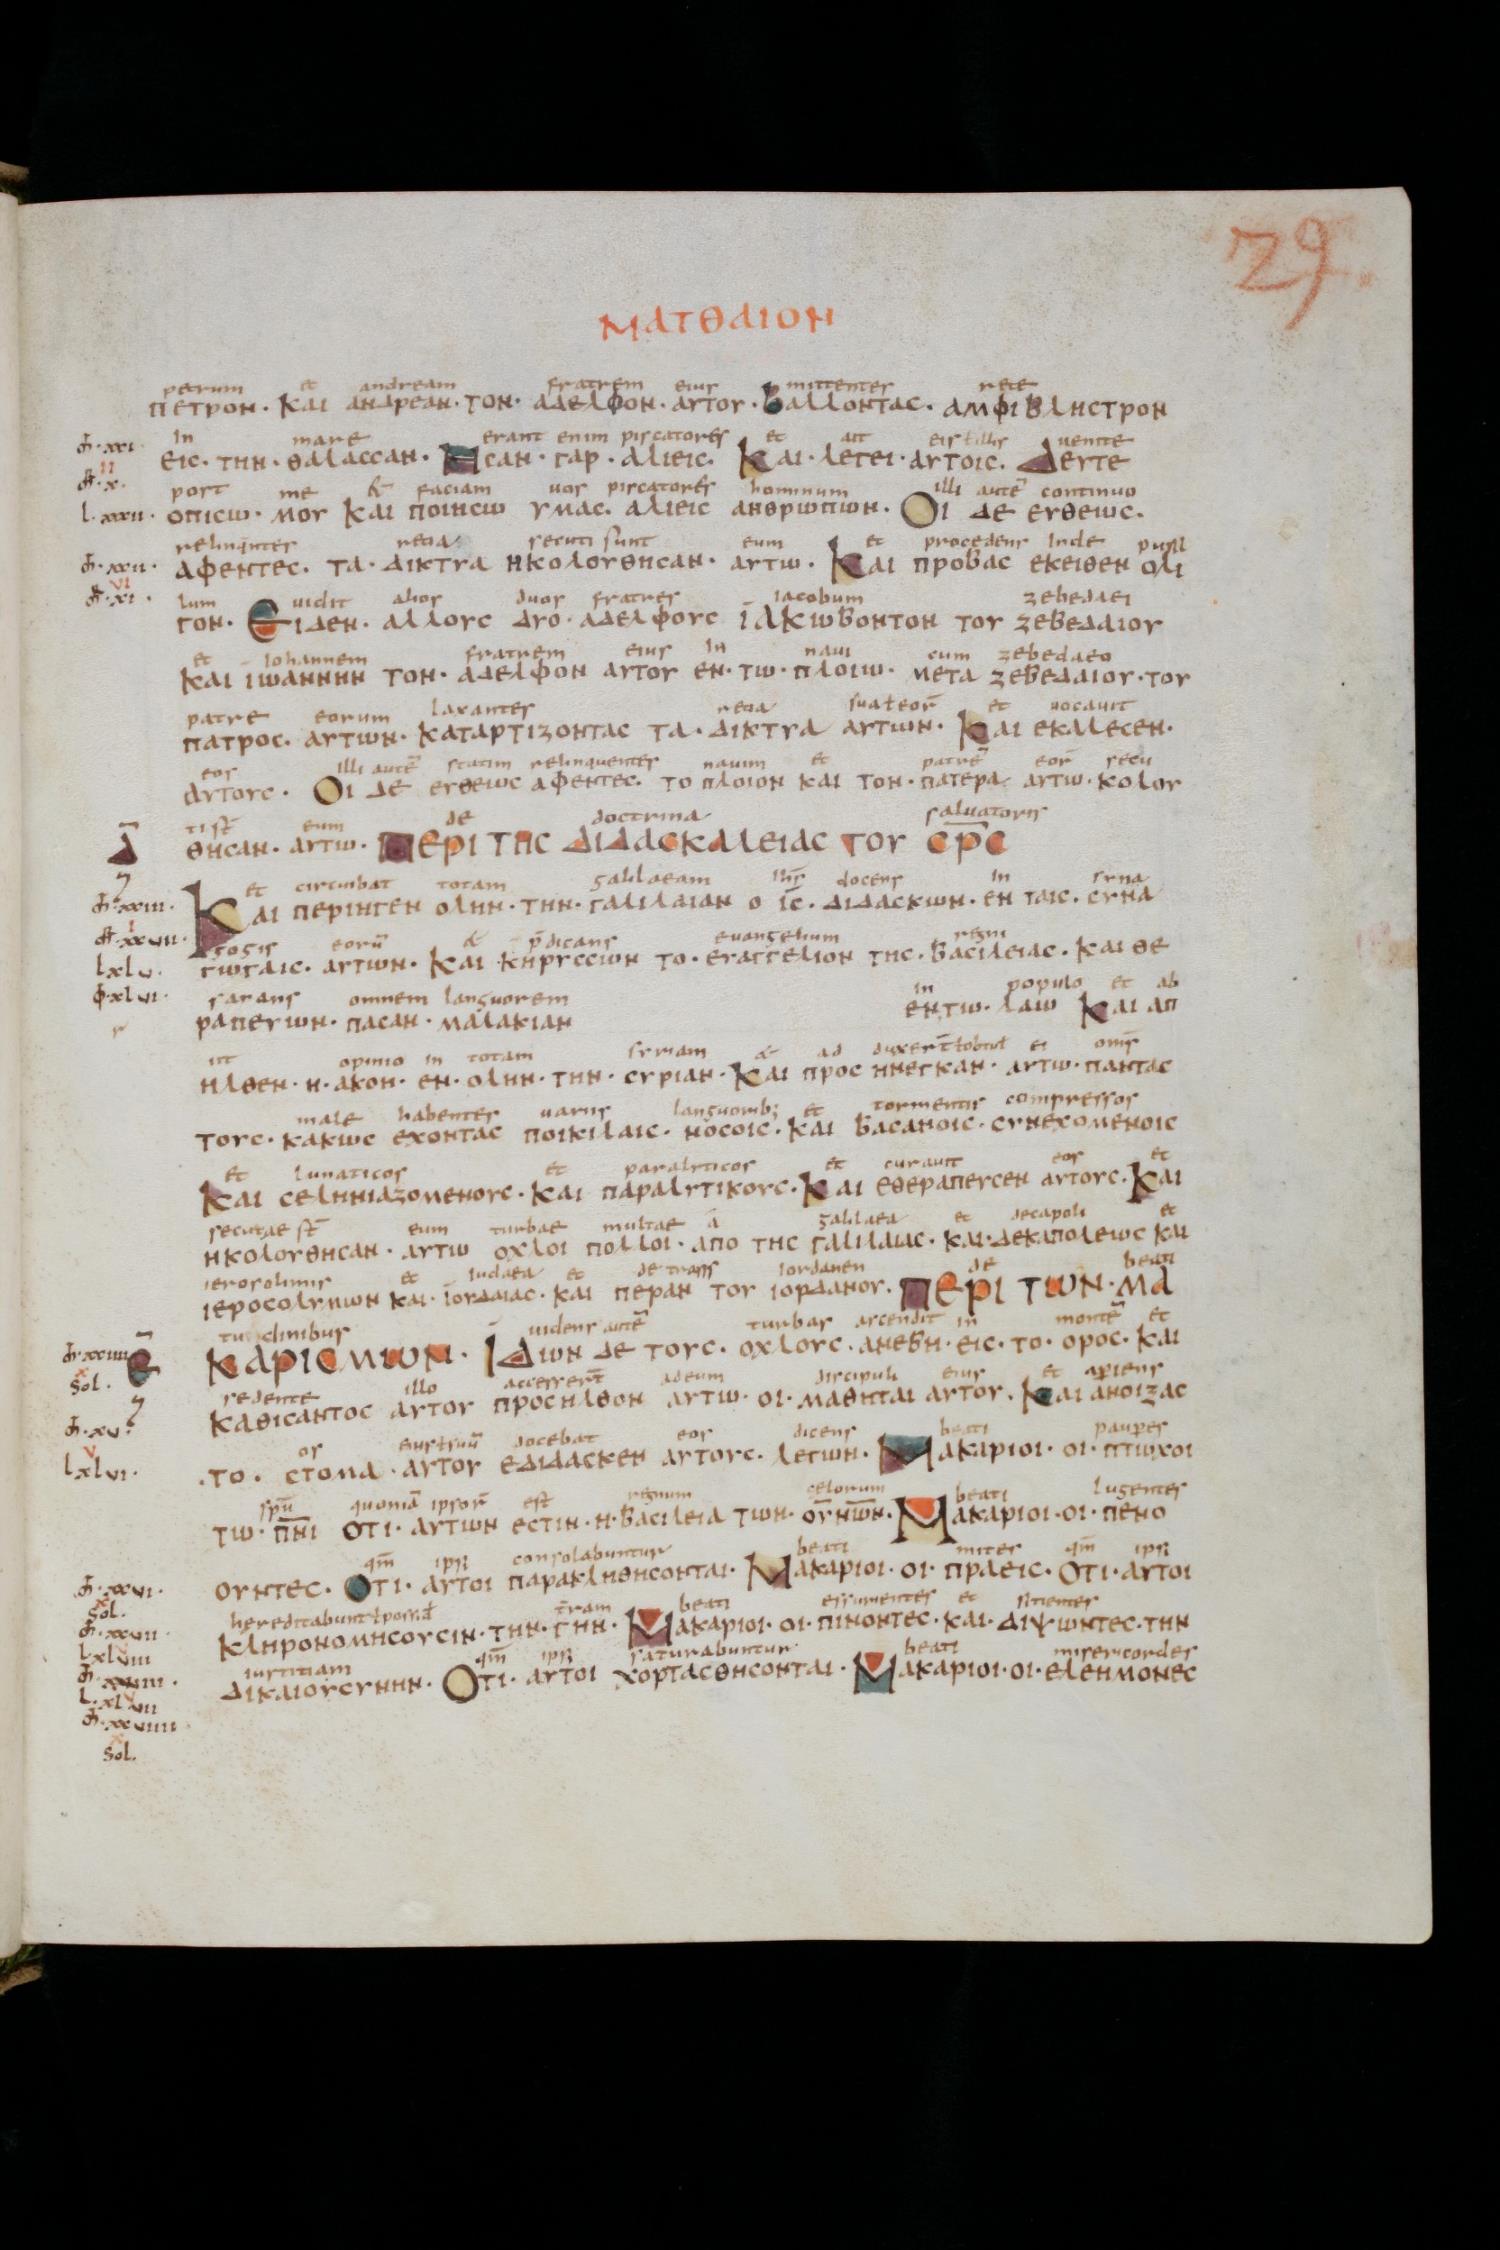 29
ΜΑΤΘΑΙΟΝ
petrum et andream fratrem eius mittentes rete
ΠΕΤΡΟΝ· ΚΑΙ ΑΝΔΡΕΑΝ· ΤΟΝ· ΑΔΕΛΦΟΝ· ΑΥΤΟΥ· ΒΑΛΛΟΝΤΑС· ΑΜΦΙΒΛΗСΤΡΟΝ
in mare erant enim piscatores et ait eis ł illis uenite
ΕΙС· ΤΗΝ· ΘΑΛΑССΑΝ· ΗСΑΝ· ΓΑΡ· ΑΛΙΕΙС· ΚΑΙ· ΛΕΓΕΙ· ΑΥΤΟΙС· ΔΕΥΤΕ
post me & faciam uos piscatores hominum illi autē continuo
l·xxxii· ΟΠΙСΩ· ΜΟΥ ΚΑΙ ΠΟΙΗСΩ ΥΜΑС· ΑΛΙΕΙС ΑΝΘΡΩΠΩΝ· ΟΙ ΔΕ ΕΥΘΕΩС·
relinq̄ntes retia secuti sunt eum et procedens inde pusil
ΑΦΕΝΤΕС· ΤΑ· ΔΙΚΤΥΑ ΗΚΟΛΟΥΘΗСΑΝ· ΑΥΤΩ· ΚΑΙ ΠΡΟΒΑС ΕΚΕΙΘΕΝ ΟΛΙ
lum uidit alios duos fratres iacobum zebedaei
ΓΟΝ· ΕΙΔΕΝ· ΑΛΛΟΥС ΔΥΟ· ΑΔΕΛΦΟΥС ΙΑΚΩΒΟΝΤΟΝ ΤΟΥ ΖΕΒΕΔΑΙΟΥ
et iohannem fratrem eius in naui cum zebedaeo
ΚΑΙ ΙΩΑΝΝΗΝ ΤΟΝ· ΑΔΕΛΦΟΝ ΑΥΤΟΥ ΕΝ· ΤΩ· ΠΛΟΙΩ· ΜΕΤΑ ΖΕΒΕΔΑΙΟΥ· ΤΟΥ
patre eorum laxantes retia sua ł eor̄ et uocauit
ΠΑΤΡΟС· ΑΥΤΩΝ· ΚΑΤΑΡΤΙΖΟΝΤΑС ΤΑ· ΔΙΚΤΥΑ ΑΥΤΩΝ· ΚΑΙ ΕΚΑΛΕСΕΝ·
eos illi autē statim relinquentes nauim et patrē eor̄ secu
ΑΥΤΟΥС· ΟΙ ΔΕ ΕΥΘΕΩС ΑΦΕΝΤΕС· ΤΟ ΠΛΟΙΟΝ ΚΑΙ ΤΟΝ· ΠΑΤΕΡΑ ΑΥΤΩ· ΚΟΛΟΥ
ti st̄ eum de doctrina saluatoris
Δ̄ ΘΗСΑΝ· ΑΥΤΩ· ΠΕΡΙ ΤΗС ΔΙΔΑСΚΑΛΕΙΑС ΤΟΥ С̄Ρ̄С
et circuibat totam galilaeam ih̄s docens in syna
ΚΑΙ ΠΕΡΙΗΓΕΝ ΟΛΗΝ· ΤΗΝ· ΓΑΛΙΛΑΙΑΝ Ο ῙС· ΔΙΔΑСΚΩΝ· ΕΝ ΤΑΙС· СΥΝΑ
gogis eorū & p̄dicans euangelium regni
lxlv· ΓΩΓΑΙС· ΑΥΤΩΝ· ΚΑΙ ΚΗΡΥССΩΝ ΤΟ· ΕΥΑΓΓΕΛΙΟΝ ΤΗС· ΒΑСΙΛΕΙΑС· ΚΑΙ ΘΕ
sanans omnem languorem in populo et ab
ΡΑΠΕΥΩΝ· ΠΑСΑΝ· ΜΑΛΑΚΙΑΝ ΕΝ ΤΩ· ΛΑΩ ΚΑΙ ΑΠ
iit opinio in totam syriam & ad ei om̄s
ΗΛΘΕΝ· Η· ΑΚΟΗ· ΕΝ· ΟΛΗΝ· ΤΗΝ· СΥΡΙΑΝ· ΚΑΙ ΠΡΟС ΗΝΕΓΚΑΝ· ΑΥΤΩ· ΠΑΝΤΑС
male habentes uariis languorib; et tormentis compressos
ΤΟΥС· ΚΑΚΩС ΕΧΟΝΤΑС ΠΟΙΚΙΛΑΙС· ΝΟСΟΙС· ΚΑΙ ΒΑСΑΝΟΙС· СΥΝΕΧΟΜΕΝΟΙС
et lunaticos et paralyticos et curauit eos et
ΚΑΙ СΕΛΗΝΙΑΖΟΜΕΝΟΥС· ΚΑΙ ΠΑΡΑΛΥΤΙΚΟΥС· ΚΑΙ ΕΘΕΡΑΠΕΥСΕΝ ΑΥΤΟΥС· ΚΑΙ
secutae st̄ eum turbae multae a galilaea et decapoli et
ΗΚΟΛΟΥΘΗСΑΝ· ΑΥΤΩ ΟΧΛΟΙ ΠΟΛΛΟΙ· ΑΠΟ ΤΗС ΓΑΛΙΛΑΙΑС· ΚΑΙ· ΔΕΚΑΠΟΛΕΩС ΚΑΙ
ierosolimis et iudaea et de trans iordanen de beati
ΙΕΡΟСΟΛΥΜΩΝ ΚΑΙ· ΙΟΥΔΑΙΑС· ΚΑΙ ΠΕΡΑΝ ΤΟΥ ΙΟΡΔΑΝΟΥ· ΠΕΡΙ ΤΩΝ· ΜΑ
tudinibus uidens autē turbas ascendit in montē et
Ε̄ ΚΑΡΙСΜΩΝ· ΙΔΩΝ ΔΕ ΤΟΥС· ΟΧΛΟΥС· ΑΝΕΒΗ· ΕΙС· ΤΟ· ΟΡΟС· ΚΑΙ
sol· sedente illo accesser̄t ad eum discipuli eius et apiens
ΚΑΘΙСΑΝΤΟС ΑΥΤΟΥ ΠΡΟСΗΛΘΟΝ ΑΥΤΩ· ΟΙ· ΜΑΘΗΤΑΙ ΑΥΤΟΥ· ΚΑΙ ΑΝΟΙΖΑС
os eius ł suū docebat eos dicens beati paupes
lxlvi· ·ΤΟ· СΤΟΜΑ· ΑΥΤΟΥ ΕΔΙΔΑСΚΕΝ ΑΥΤΟΥС· ΛΕΓΩΝ· ΜΑΚΑΡΙΟΙ· ΟΙ· ΠΤΩΧΟΙ
spū quoniā ipsor̄ est regnum celorum beati lugentes
ΤΩ· Π̄Ν̄Ι ΟΤΙ· ΑΥΤΩΝ ΕСΤΙΝ· Η· ΒΑСΙΛΕΙΑ ΤΩΝ· ΟῩΝΩ̄Ν· ΜΑΚΑΡΙΟΙ· ΟΙ· ΠΕΝΟ
qm̄ ipsi consolabuntur beati mites qm̄ ipsi
ΟΥΝΤΕС· ΟΤΙ· ΑΥΤΟΙ ΠΑΡΑΚΛΗΘΗСΟΝΤΑΙ· ΜΑΚΑΡΙΟΙ· ΟΙ· ΠΡΑΕΙС· ΟΤΙ· ΑΥΤΟΙ
sol· t̄ram beati essurientes et sitientes
ΚΛΗΡΟΝΟΜΗСΟΥСΙΝ· ΤΗΝ· ΓΗΝ· ΜΑΚΑΡΙΟΙ· ΟΙ· ΠΙΝΟΝΤΕС· ΚΑΙ· ΔΙΨΩΝΤΕС· ΤΗΝ
iustitiam qm̄ ipsi saturabuntur beati misericordes
ΔΙΚΑΙΟΥСΥΝΗΝ· ΟΤΙ· ΑΥΤΟΙ ΧΟΡΤΑСΘΗСΟΝΤΑΙ· ΜΑΚΑΡΙΟΙ· ΟΙ· ΕΛΕΗΜΟΝΕС
sol·